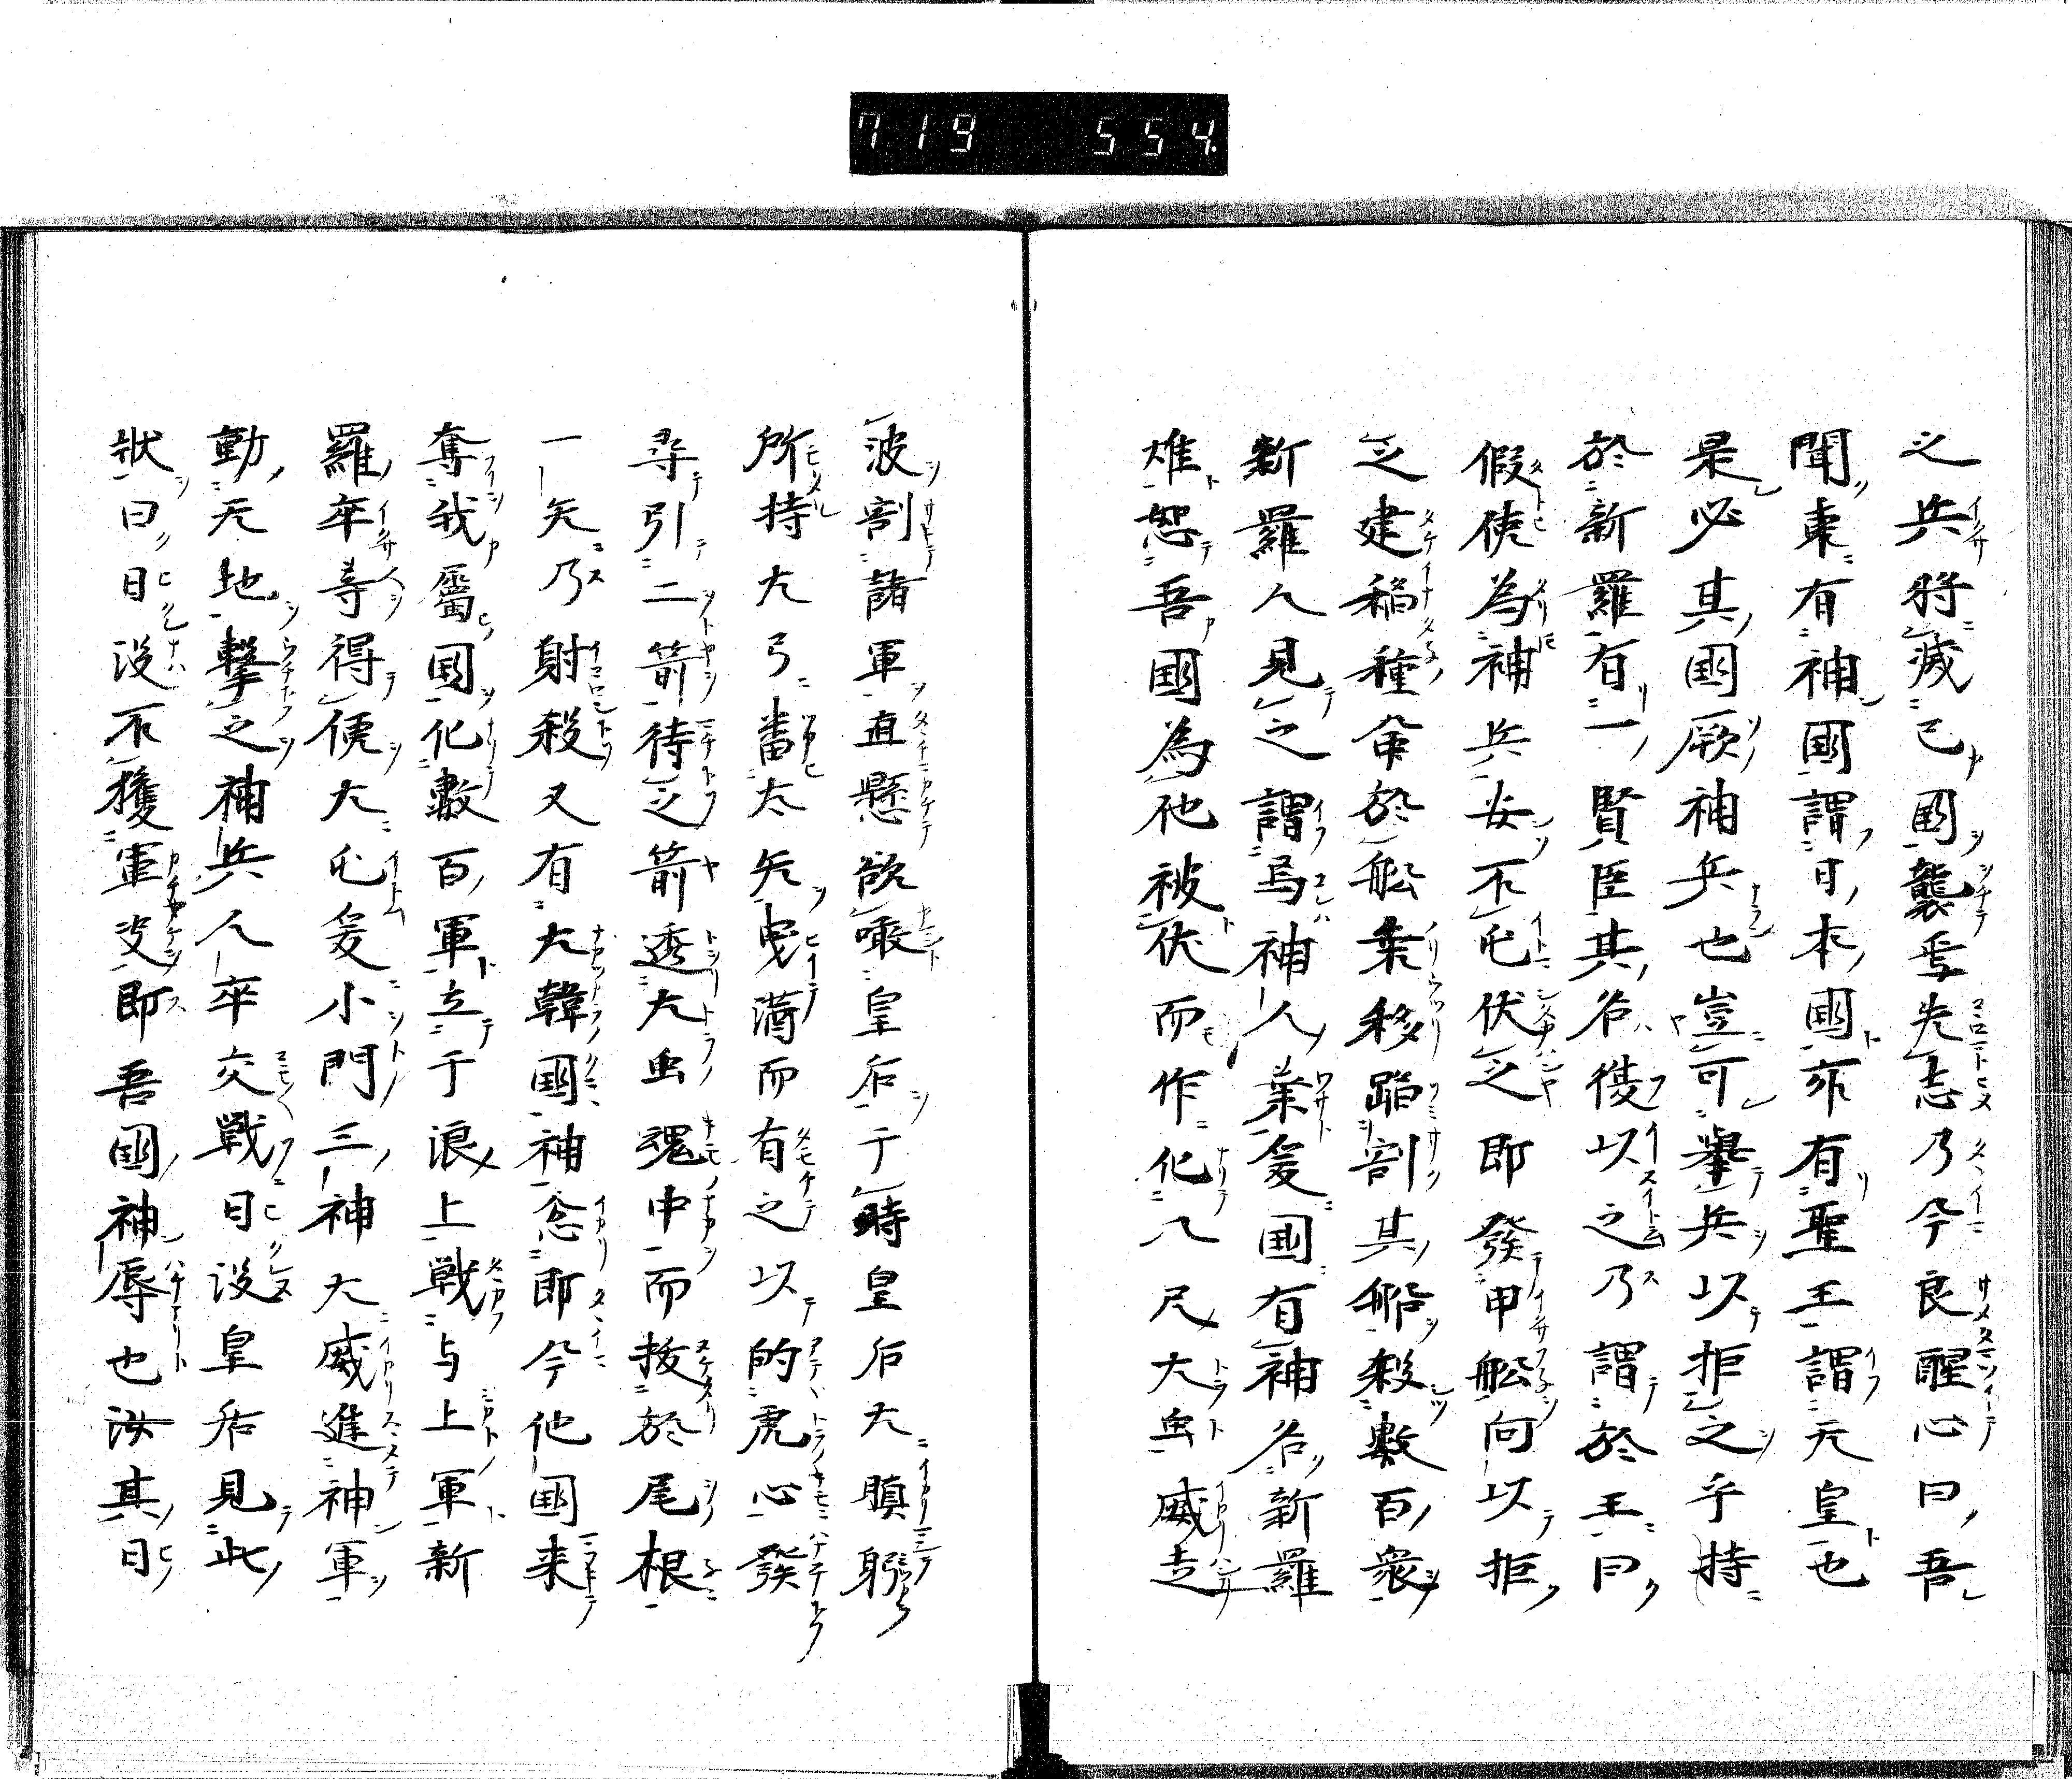 719 554
之兵将滅己國襲乎先志乃今良醒心曰吾
聞東有神國謂日本國亦有聖王謂天皇也
是必其國厥神兵也豈可擧兵以拒之乎持
於新羅有一賢臣其名俊以之乃謂於王曰
假使為神兵安不伏之即發甲舩向以拒
之建稲種命於舩乗移蹈割其船殺數百衆
新羅人見之謂焉神人業爰国有神名新羅
雄恕吾國為他被伏而作化八尺大虫威走
波割諸軍直懸欲噉皇后于時皇后大瞋躬
所持大弓番太矢曳満而有之以的虎心發
尋引二箭待之箭透大虫魂中而拔於尾根
一矢乃射殺又有大韓國神忿即今他國来
奪我屬国化數百軍立于浪上戦与上軍新
羅卒等得便大爰小門三神大威進神軍
動天地撃之神兵人卒交戦日没皇后見此
状曰日没不獲軍即吾國神辱也汝其日